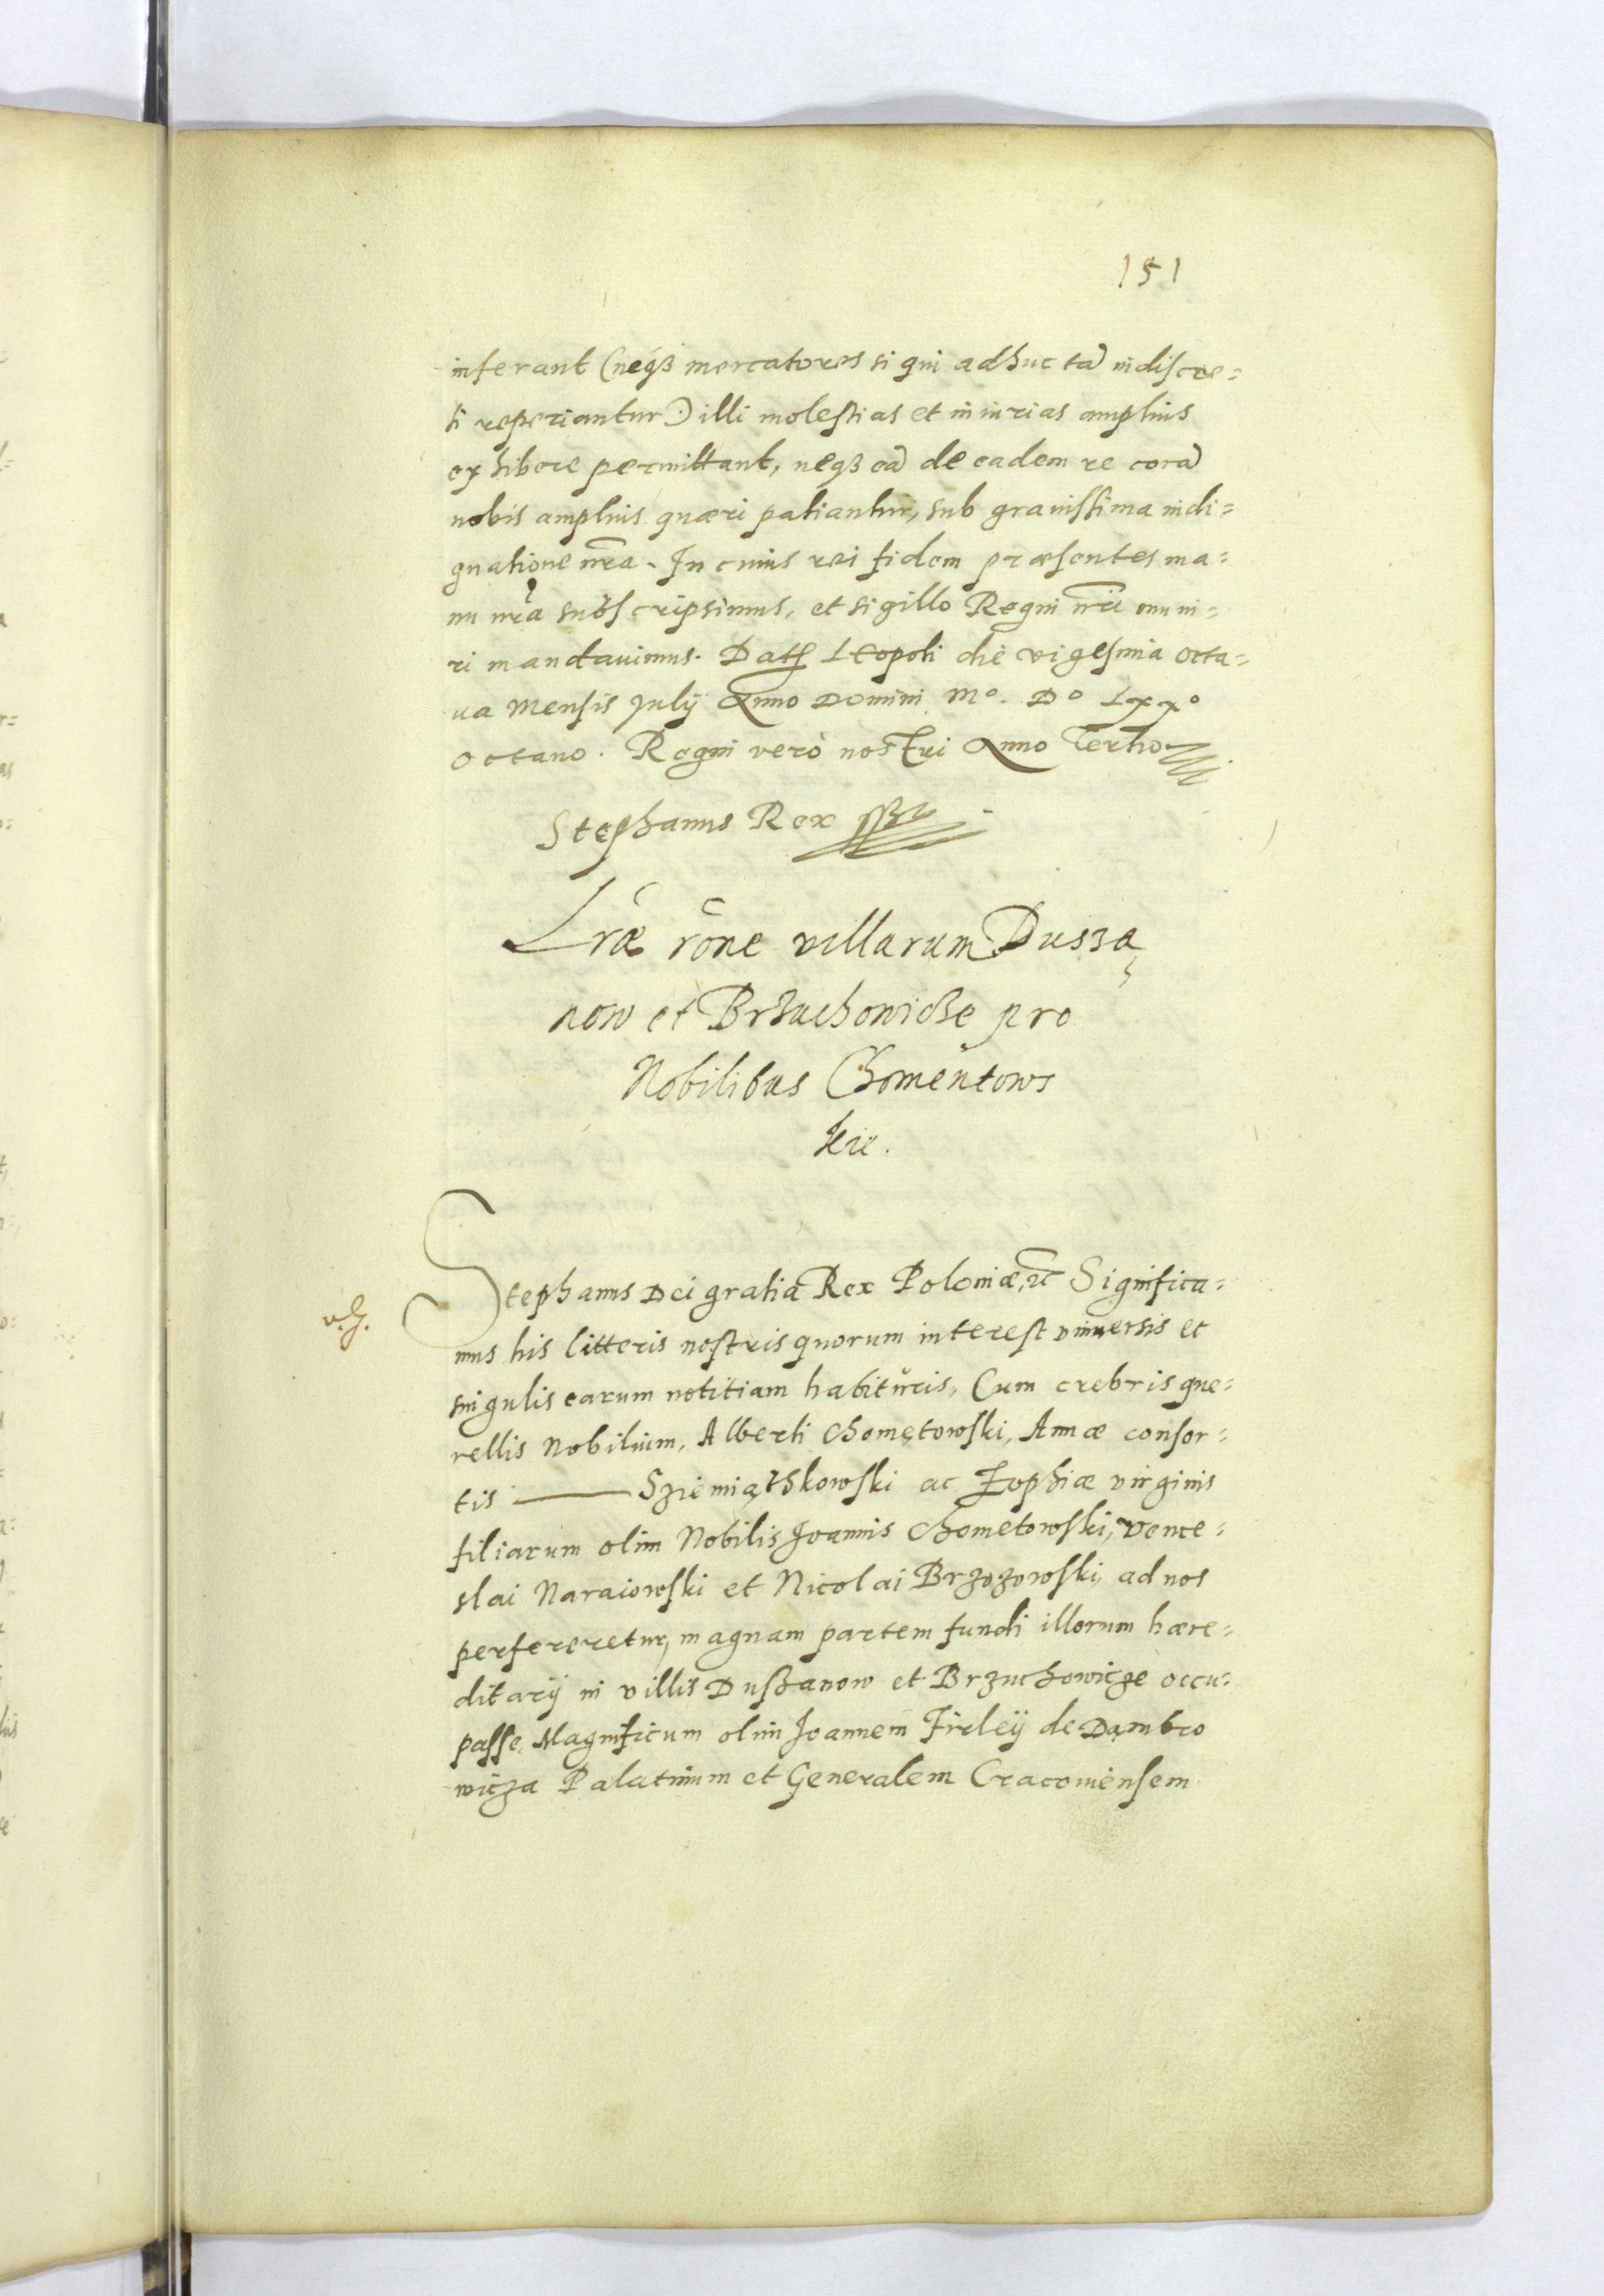 151
inferant (neqȝ mercatores si qui adhuc tā indiscre=
ti reperiantur) illi molestias et iniurias amplius
exhibere permittant, neqȝ eā de eadem re corā
nobis amplius quæri patiantur, sub grauissima indi=
gnatione nrã. In cuius rei fidem præsentes ma=
nu nrã subscripsimus, et sigillo Regni nrĩ muni=
ri mandauimus. Datȝ Leopoli die vigesima octa=
ua Mensis July Anno Domini Mº. Dº Lxxº
octauo. Regni verò nostri Anno Tertio
Stephanus Rex sst
Lræ rõne villarum Dussa
now et Brzuchowicze pro
Nobilibus Chomentows
kie.
Stephanus Dei gratia Rex Poloniæ, ꝛc̃ Significa=
v.g.
mus his litteris nostris quorum interest vniuersis et
singulis earum notitiam habituris, Cum crebris que=
rellis Nobilium, Alberti Chomętowski, Annæ consor=
tis ——— Sziemiąthkowski ac Zophiæ virginis
filiarum olim Nobilis Joannis Chometowski, Vence=
slai Naraiowski et Nicolai Brzozowski, ad nos
perferretur, magnam partem fundi illorum hære=
ditarij in villis Dusßanow et Brzuchowicze occu=
passe, Magnificum olim Joannem Firleÿ de Dąmbro
wicza Palatinum et Generalem Cracouiensem